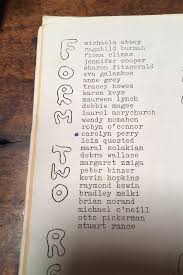 FORM TWO R
michaela abbey
ragnhild burman
fiona climas
jennifer cooper
sharon fitzgerald
eva galambos
anne grey
tracey howes
karen keys
maureen lynch
debbie magee
laurel marychurch
wendy mcmahon
robyn o'connor
carolyn perry
lois quested
maral solakian
debra wallace
margaret zsiga
peter binzer
kevin hopkins
raymond kewin
bradley melki
brian morand
michael o'neill
otto pickerman
stuart rance